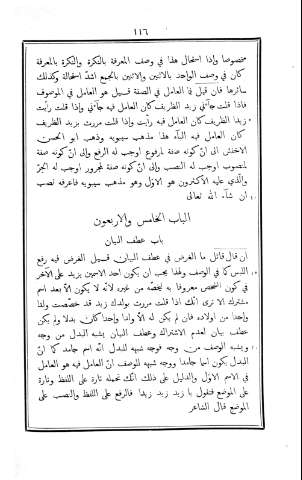 ١١٦
مخصوصا واذا استحال هذا فى وصف المعرفة بالنكرة والنكرة بالمعرفة
كان فى وصف الواحد بالاثنين والاثنين بالجمع اشدّ استحالة وكذلك
سائرها فان قيل فما العامل فى الصفة قيل هو العامل فى الموصوف
فاذا قلت جاءنى زيد الظريف كان العامل فيه جاءنى واذا قلت رأيت
زيدا الظريف كان العامل فيه رأيت واذا قلت مررت بزيد الظريف
كان العامل فيه الباء هذا مذهب سيبويه وذهب ابو الحسن
الاخفش الى انّ كونه صفة لمرفوع اوجب له الرفع والى انّ كونه صفة
لمنصوب اوجب له النصب والى انّ كونه صفة لمجرور اوجب له الجرّ
والّذى عليه الاكثرون هو الاوّل وهو مذهب سيبويه فاعرفه تصب
١٠ ان شاء الله تعالى
الباب الخامس والاربعون
باب عطف البيان
ان قال قائل ما الغرض فى عطف البيان قيل الغرض فيه رفع
اللبس كما فى الوصف ولهذا يجب ان يكون احد الاسمين يزيد على الآخر
فى كون الشخص معروفا به ليخصّه من غيره لانّه لا يكون الّا بعد اسم
مشترك الا ترى انّك اذا قلت مررت بولدك زيد قد خصّصت ولدا
واحدا من اولاده فان لم يكن له الّا ولدا واحدا كان بدلا ولم يكن
عطف بيان لعدم الاشتراك وعطف البيان يشبه البدل من وجه
ويشبه الوصف من وجه فوجه شبهه للبدل انّه اسم جامد كما انّ
البدل يكون اسما جامدا ووجه شبهه للوصف انّ العامل فيه هو العامل
فى الاسم الاوّل والدليل على ذلك انّك تحمله تارة على اللفظ وتارة
على الموضع فتقول يا زيد زيد زيدا فالرفع على اللفظ والنصب على
الموضع قال الشاعر